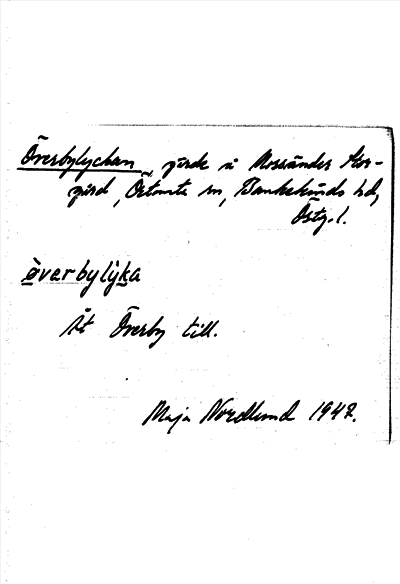 Överbylyckan, gärde i Mossänder Stor-
gård, Örtomta sn, Bankekinds hd,
Östg. l.
ö̀verbylỳka
Åt Överby till.
Maja Nordlund 1947.